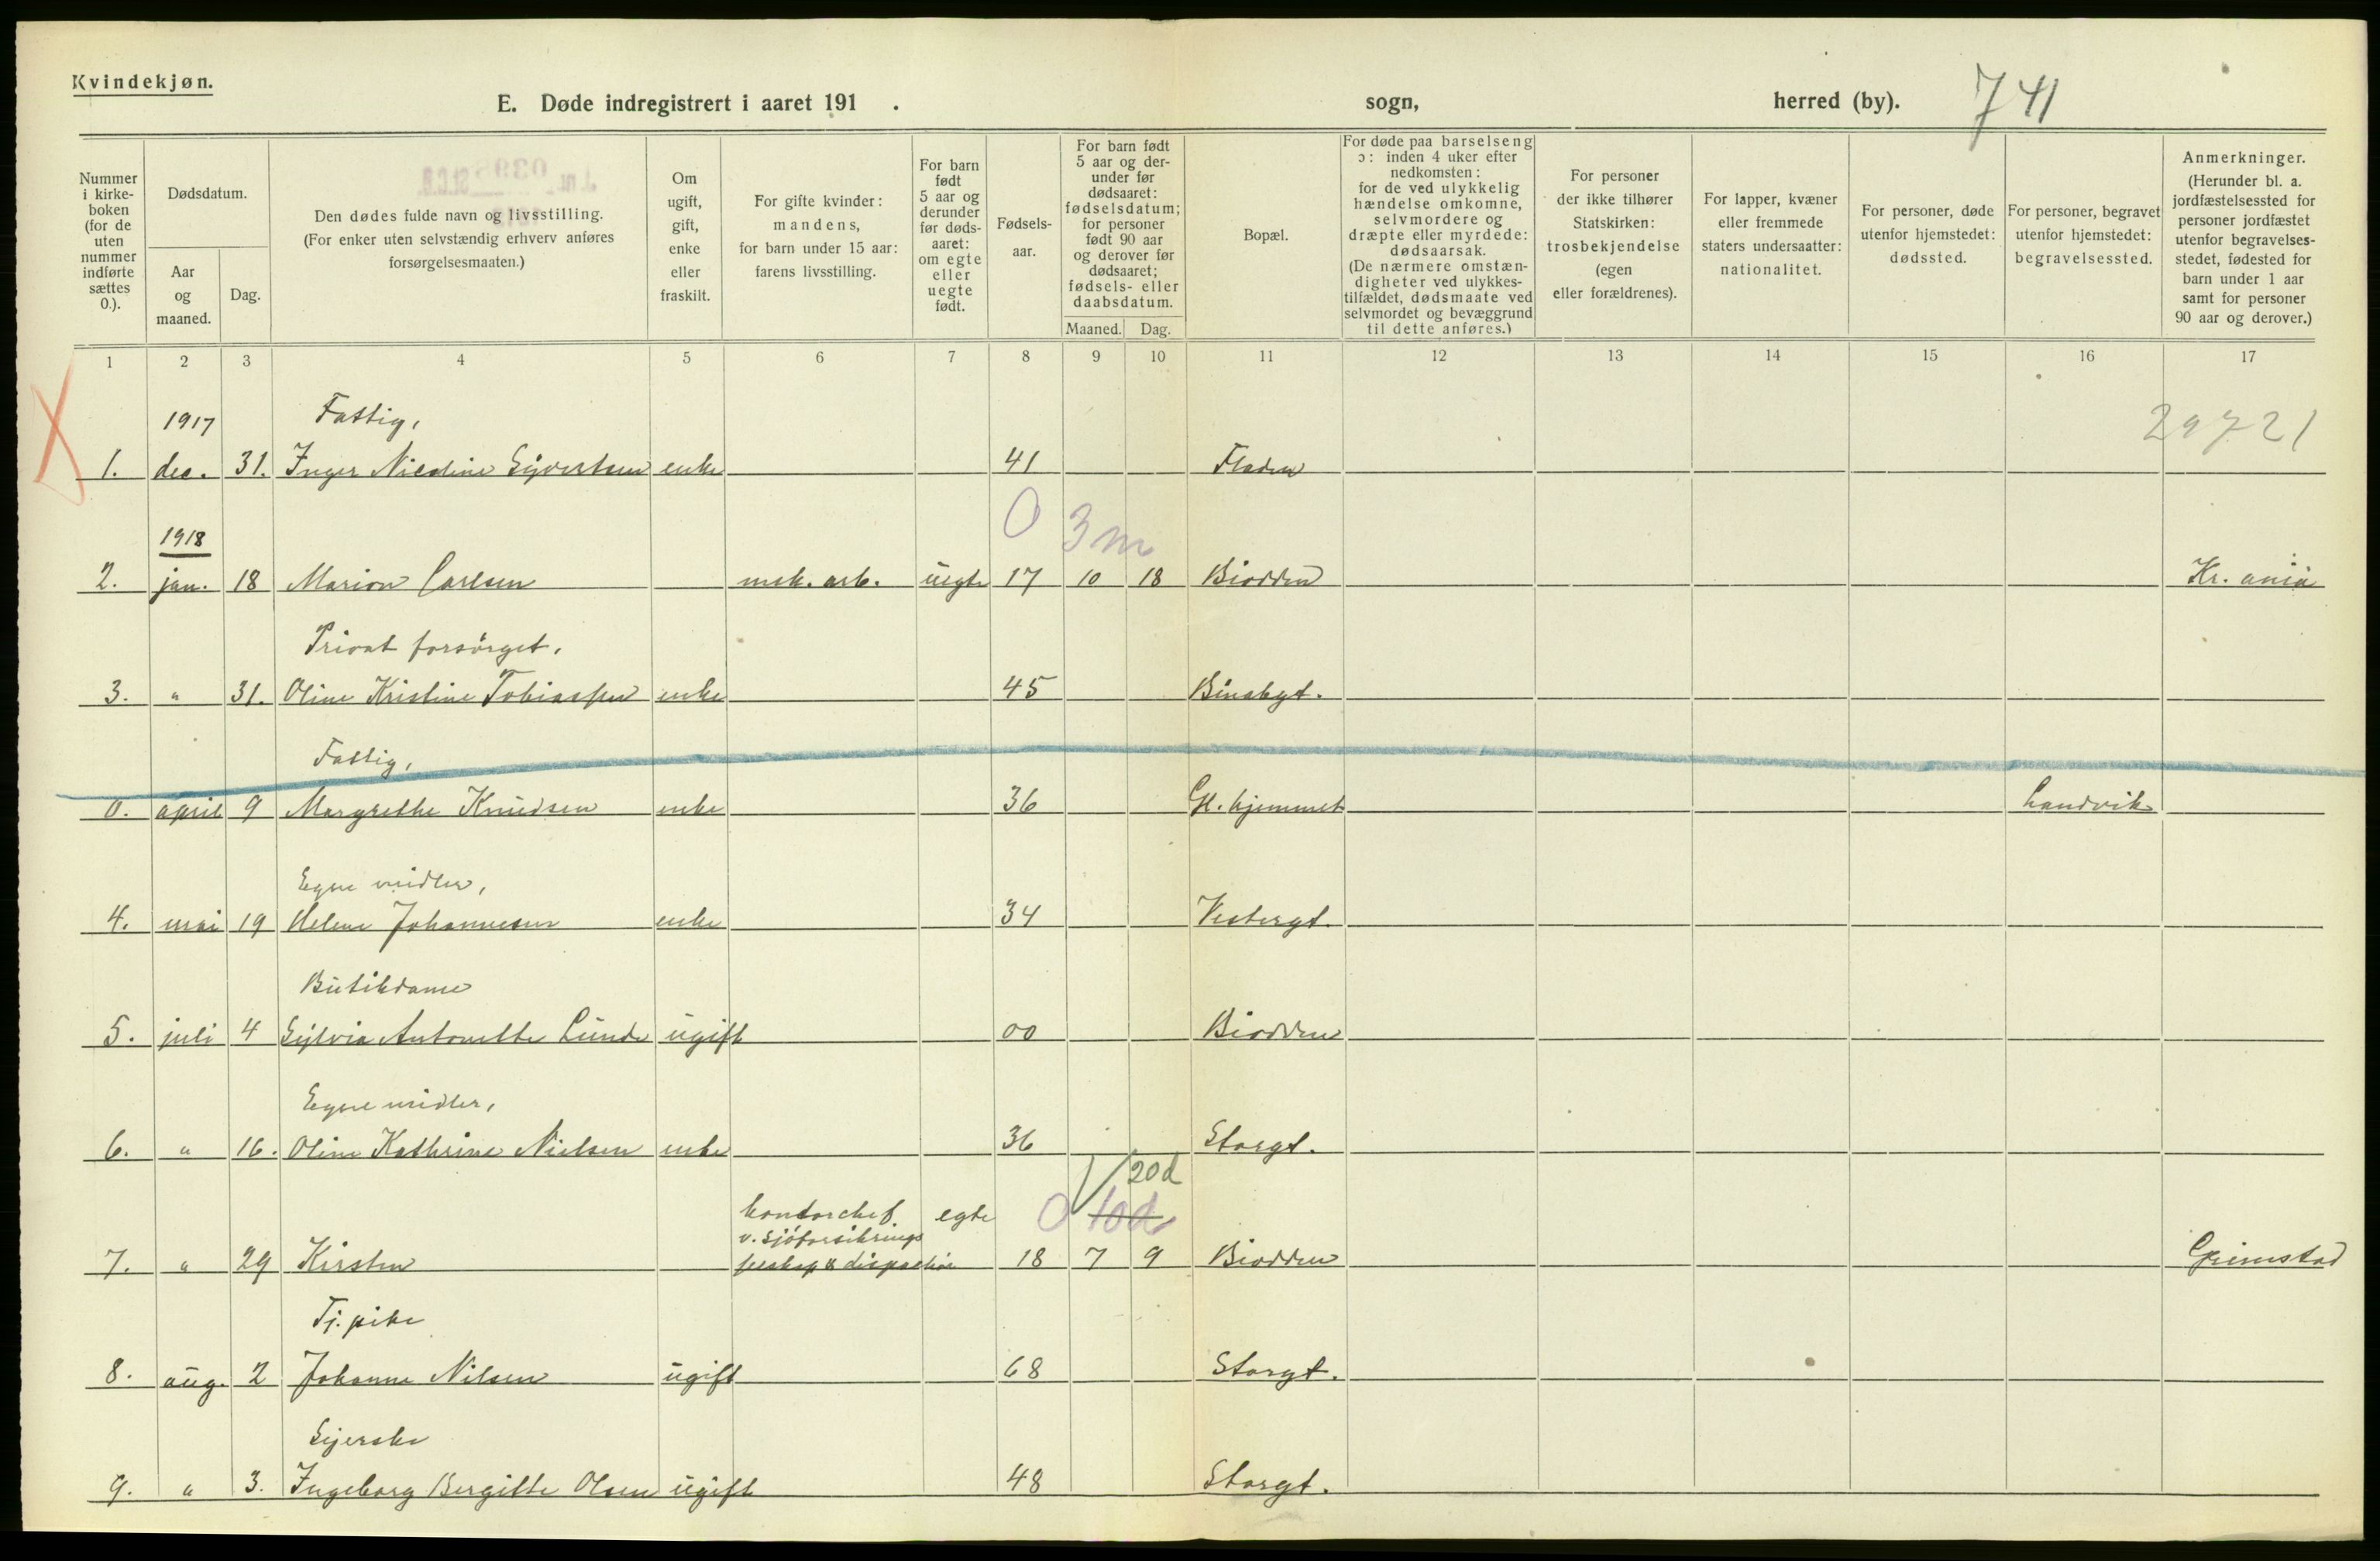 Kvindekjøn.
E. Døde indregistrert i aaret 191 .
sogn,
herred (by).
741
Nummer i kirke-boken (for de uten nummer indførte sættes 0.).
Dødsdatum.
Aar og maaned.
Dag.
Den dødes fulde navn og livsstilling.
(For enker uten selvstændig erhverv anføres forsørgelsesmaaten.)
Om ugift, gift, enke eller fraskilt.
For gifte kvinder: mandens, for barn under 15 aar: farens livsstilling.
For barn født 5 aar og derunder før døds-aaret: om egte eller uegte født.
Fødsels-aar.
For barn født 5 aar og der-under før dødsaaret: fødselsdatum; for personer født 90 aar og derover før dødsaaret; fødsels- eller daabsdatum.
Maaned. Dag.
Bopæl.
For døde paa barselseng ɔ: inden 4 uker efter nedkomsten: for de ved ulykkelig hændelse omkomne, selvmordere og dræpte eller myrdede: dødsaarsak. (De nærmere omstæn-digheter ved ulykkes-tilfældet, dødsmaate ved selvmordet og bevæggrund til dette anføres.)
For personer der ikke tilhører Statskirken: trosbekjendelse (egen eller forældrenes).
For lapper, kvæner eller fremmede staters undersaatter: nationalitet.
For personer, døde utenfor hjemstedet: dødssted.
For personer, begravet utenfor hjemstedet: begravelsessted.
Anmerkninger. (Herunder bl. a. jordfæstelsessted for personer jordfæstet utenfor begravelses-stedet, fødested for barn under 1 aar samt for personer 90 aar og derover.)
1 2 3 4 5 6 7 8 9 10 11 12 13 14 15 16 17
1917 Fattig, 29721
1. dec. 31. Inger Nicoline Syvertsen enke 41 Fladen
1918 0 3 m
2. jan. 18 Marion Carlsen msk. arb. uegte 17 10 18 Biodden Kr.ania
Privat forsørget,
3. " 31. Oline Kristine Tobiassen enke 45 Binabgt.
Fattig,
0. april 9 Margrethe Knudsen enke 36 Gl. hjemmet Landvik
Egne midler,
4. mai 19 Helene Johannesen enke 34 Vestergt.
Butikdame
5. juli 4 Sylvia Antonette Lunde ugift 00 Biodden
Egne midler,
6. " 16. Oline Kathrine Nielsen enke 36 Storgt.
20d
kontorchef egte 0 10d
v. Sjøforsikrings
7. " 29 Kirsten selskap & dispachør 18 7 9 Biodden Grimstad
Tj. pike
8. aug. 2 Johanne Nilsen ugift 68 Storgt.
Syerske
9. " 3. Ingeborg Bergitte Olsen ugift 48 Storgt.